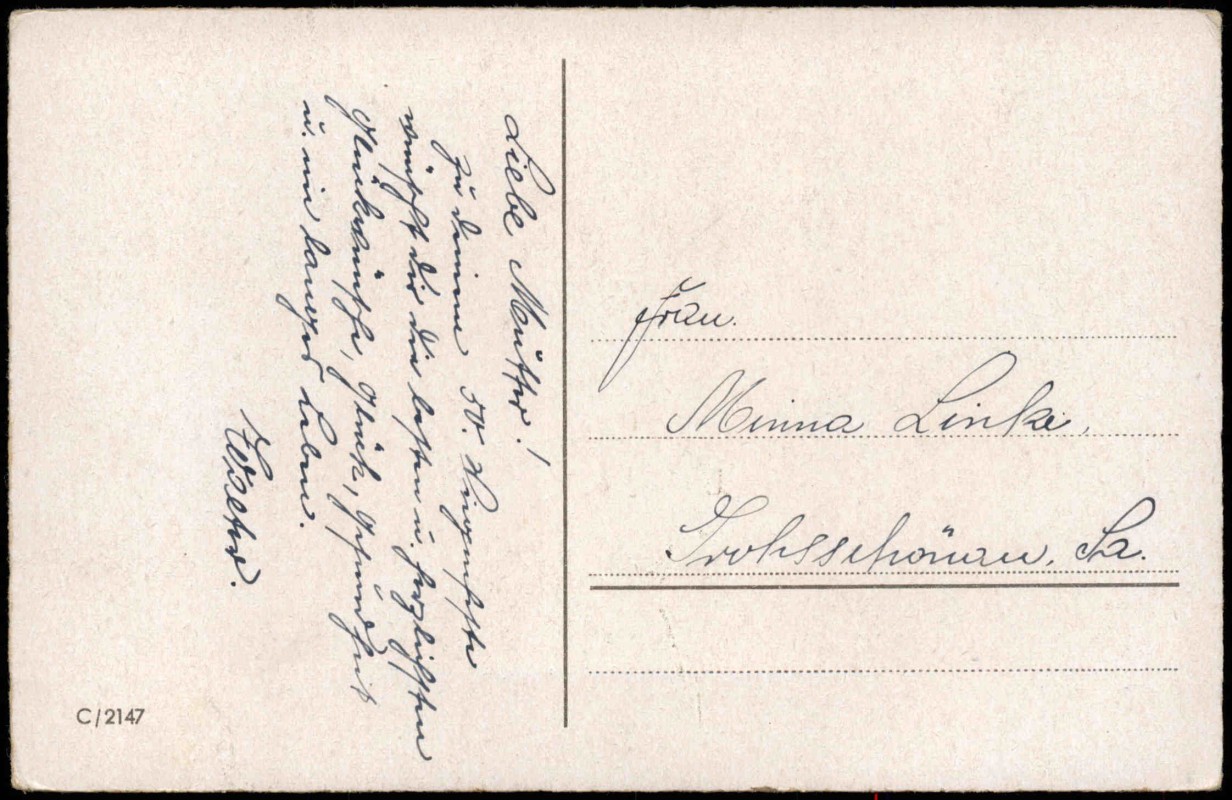 Liebe Mutter!
Zu deinem 50. Wiegenfeste
wünscht dir die besten u. herzlichsten
Glückwünsche, Glück, Gesundheit
u. ein langes Leben.
Frau.
Minna Linke,
Großschönau. Sa.
C/2147